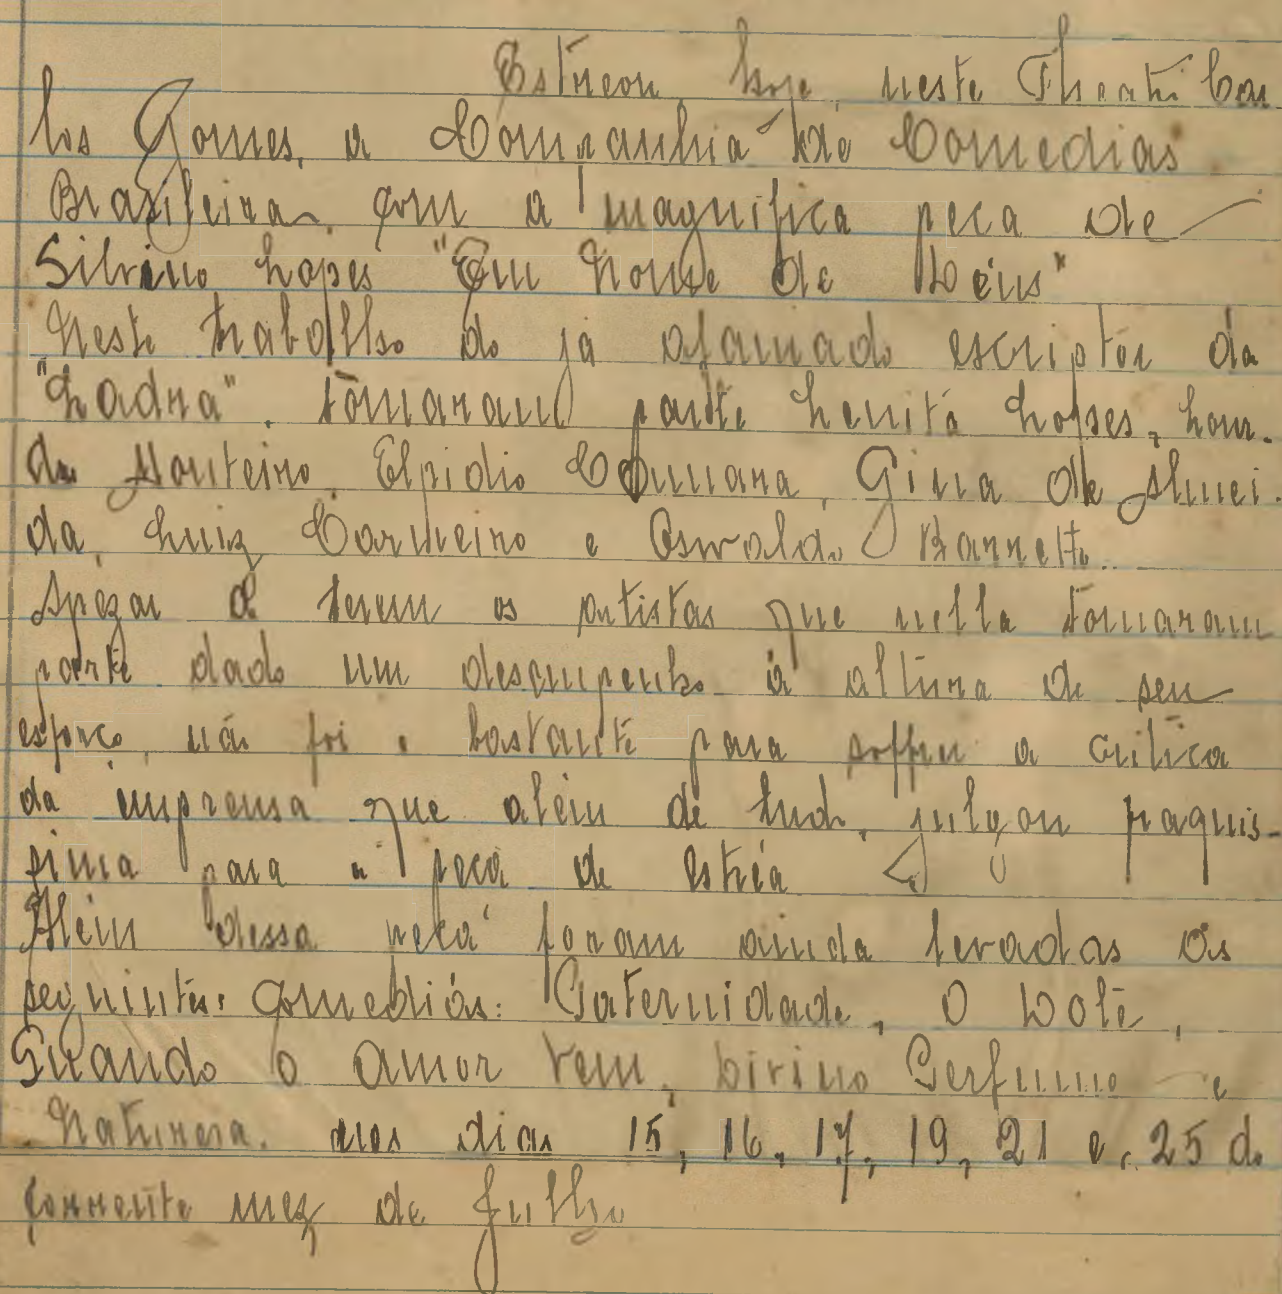 Estreou hoje, neste Theatro Car
los Gomes, a Companhia de Comedias
Brazileira, com a magnifica peça de
Silvino Lopes "Em Nome de Deus"
Neste trabalho do já afamado escriptor da
"Ladra", tomaram parte Lenita Lopes, Lour.
des Monteiro, Elpidio Camara, Gina de Almei.
da, Luiz Carneiro e Oswaldo Barretto.
Apezar de terem os artistas que nella tomaram
parte dado um desempenho á altura de seu
esforço, não foi o bastante para soffrer a critica
da imprensa que além de tudo, julgou fraquis-
sima para a peça de estréa
Além dessa peça foram ainda levadas as
seguintes comedias: Paternidade, O Bote,
Quando o Amor vem, Divino Perfume e
Natureza, nos dias 15, 16, 17, 19, 21 e, 25 do
corrente mez de Julho